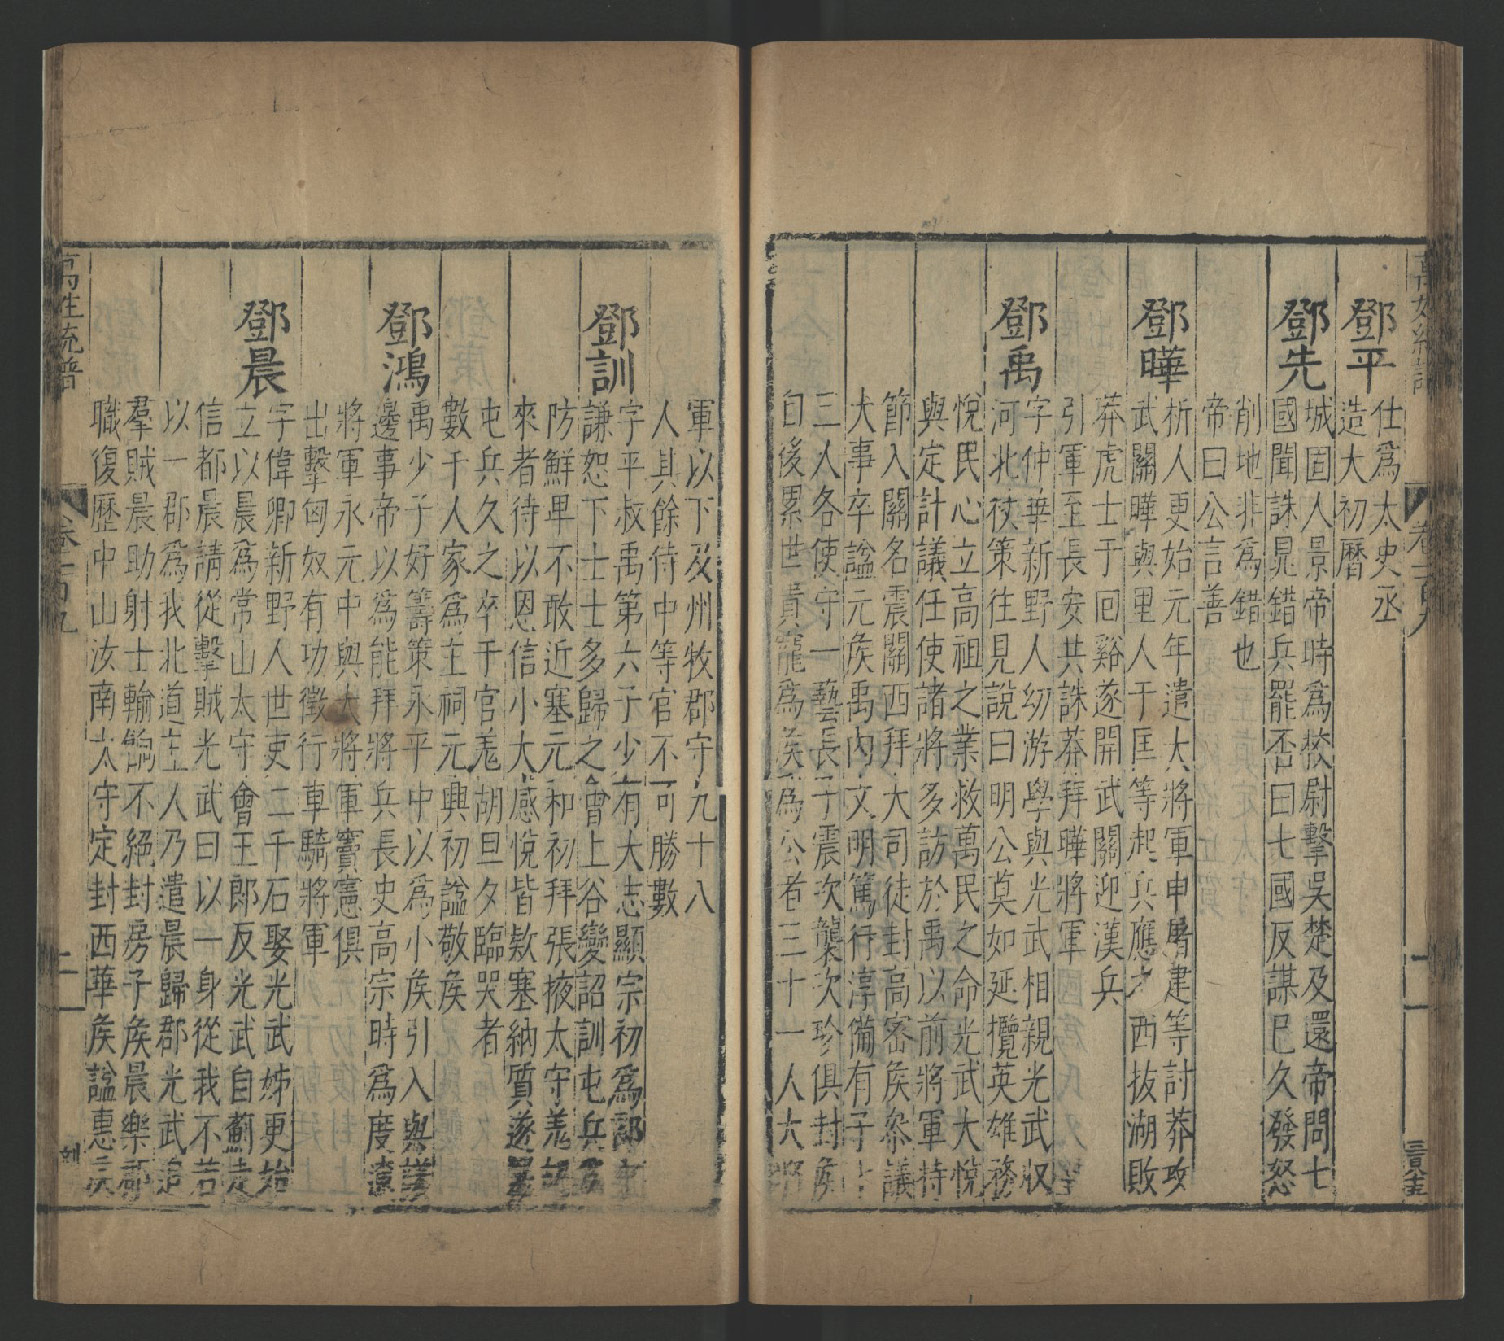 鄧平
仕爲太史丞
造大初曆
鄧先
城固人景帝時爲校尉擊吳楚及還帝問七
國聞誅晁錯兵罷否曰七國反謀已久發怒
削地非爲錯也
帝曰公言善
鄧曄
析人更始元年遣大將軍申屠建等討莽攻
武關曄與里人于匡等起兵應之西拔湖敗
莽虎士于回谿遂開武關迎漢兵
引軍至長安共誅莽拜曄將軍
鄧禹
字仲華新野人幼游學與光武相親光武収
河北杖策往見說曰明公莫如延攬英雄務
悅民心立高祖之業救萬民之命光武大悅
與定計議任使諸將多訪於禹以前將軍持
節入關名震關西拜大司徒封高密矦叅議
大事卒諡元矦禹內文明篤行淳備有子十
三人各使守一藝長子震次襲次珍俱封矦
自後累世貴寵爲矦爲公者三十一人大將
軍以下及州牧郡守九十八
人其餘侍中等官不可勝數
鄧訓
字平叔禹第六子少有大志顯宗初爲郎
謙恕下士士多歸之會上谷變詔訓屯兵
防鮮卑不敢近塞元和初拜張掖太守羗
來者待以恩信小大感悅皆欵塞納質遂
屯兵久之卒于官羗胡旦夕臨哭者
數千人家爲立祠元興初諡敬矦
鄧鴻
禹少子好籌策永平中以爲小矦引入與議
邊事帝以爲能拜將兵長史高宗時爲度遼
將軍永元中與大將軍竇憲俱
出擊匈奴有功徵行車騎將軍
鄧晨
字偉卿新野人世吏二千石娶光武姊更始
立以晨爲常山太守會王郎反光武自薊走
信都晨請從擊賊光武曰以一身從我不若
以一郡爲我北道主人乃遣晨歸郡光武追
羣賊晨助射士輸餉不絕封房子矦晨樂郡
職復歷中山汝南太守定封西華矦諡惠矦
萬姓統譜
卷一百九
二